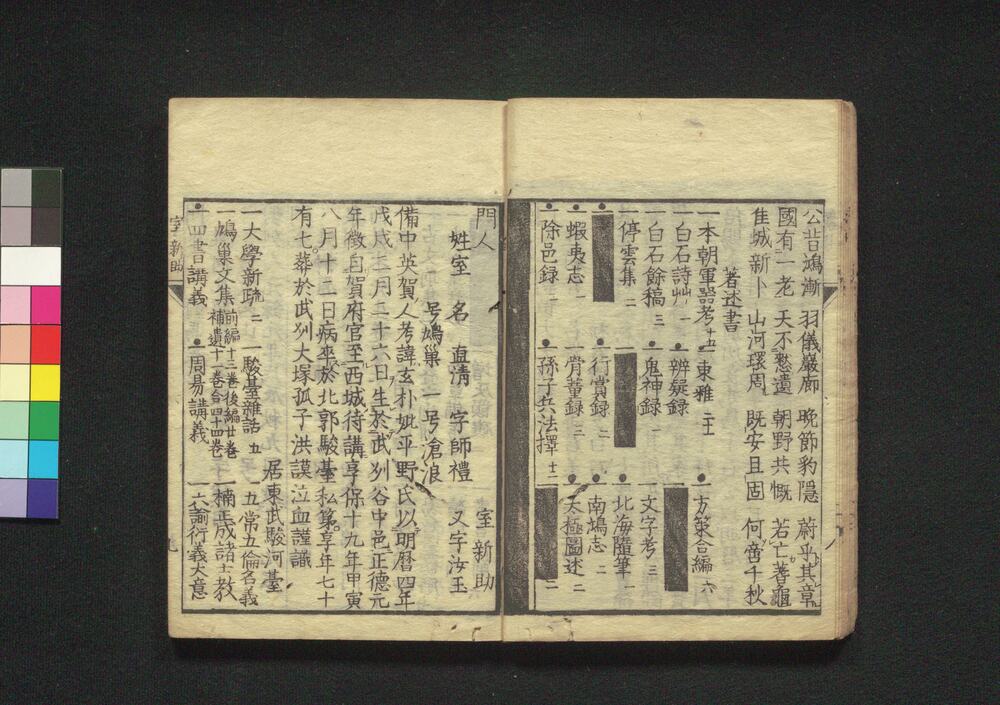 公昔鴻漸 羽儀巖廊 晩節豹隱 蔚乎其章
國有一老 天不憖遺 朝野共慨 若亡蓍龜
佳城新卜 山河環周 既安且固 何啻千秋
著述書
一本朝軍器考 十五 一東雅 二十 一方策合編 六
一白石詩艸 一 一辨疑録
一白石餘稿 三 一鬼神録 一 一文字考 三
一停雲集 二 一北海隨筆 一
一行賞録 二 一南鳩志 二
一蝦夷志 一 一骨董録 三 一太極圖述 二
一除邑録 一孫子兵法擇 十二
門人 室新助
姓室 名 直清 字師禮 又字汝玉
号鳩巢 一号滄浪
備中英賀人考諱玄朴妣平野氏以明曆四年
戊戌二月二十六日生於武刕谷中邑正德元
年徵自賀府官至西城待講享保十九年甲寅
八月十二日病卒於北郭駿臺私第享年七十
有七葬於武刕大塚孤子洪謨泣血謹識
居東武駿河臺
一大學新疏 二 一駿臺雜話 五 一五常五倫名義
一鳩巢文集 前編十三巻後編廿巻 補遺十一巻合四十四巻 一楠正成諸士教
一四書講義 一周易講義 一六諭衍義大意
室新助